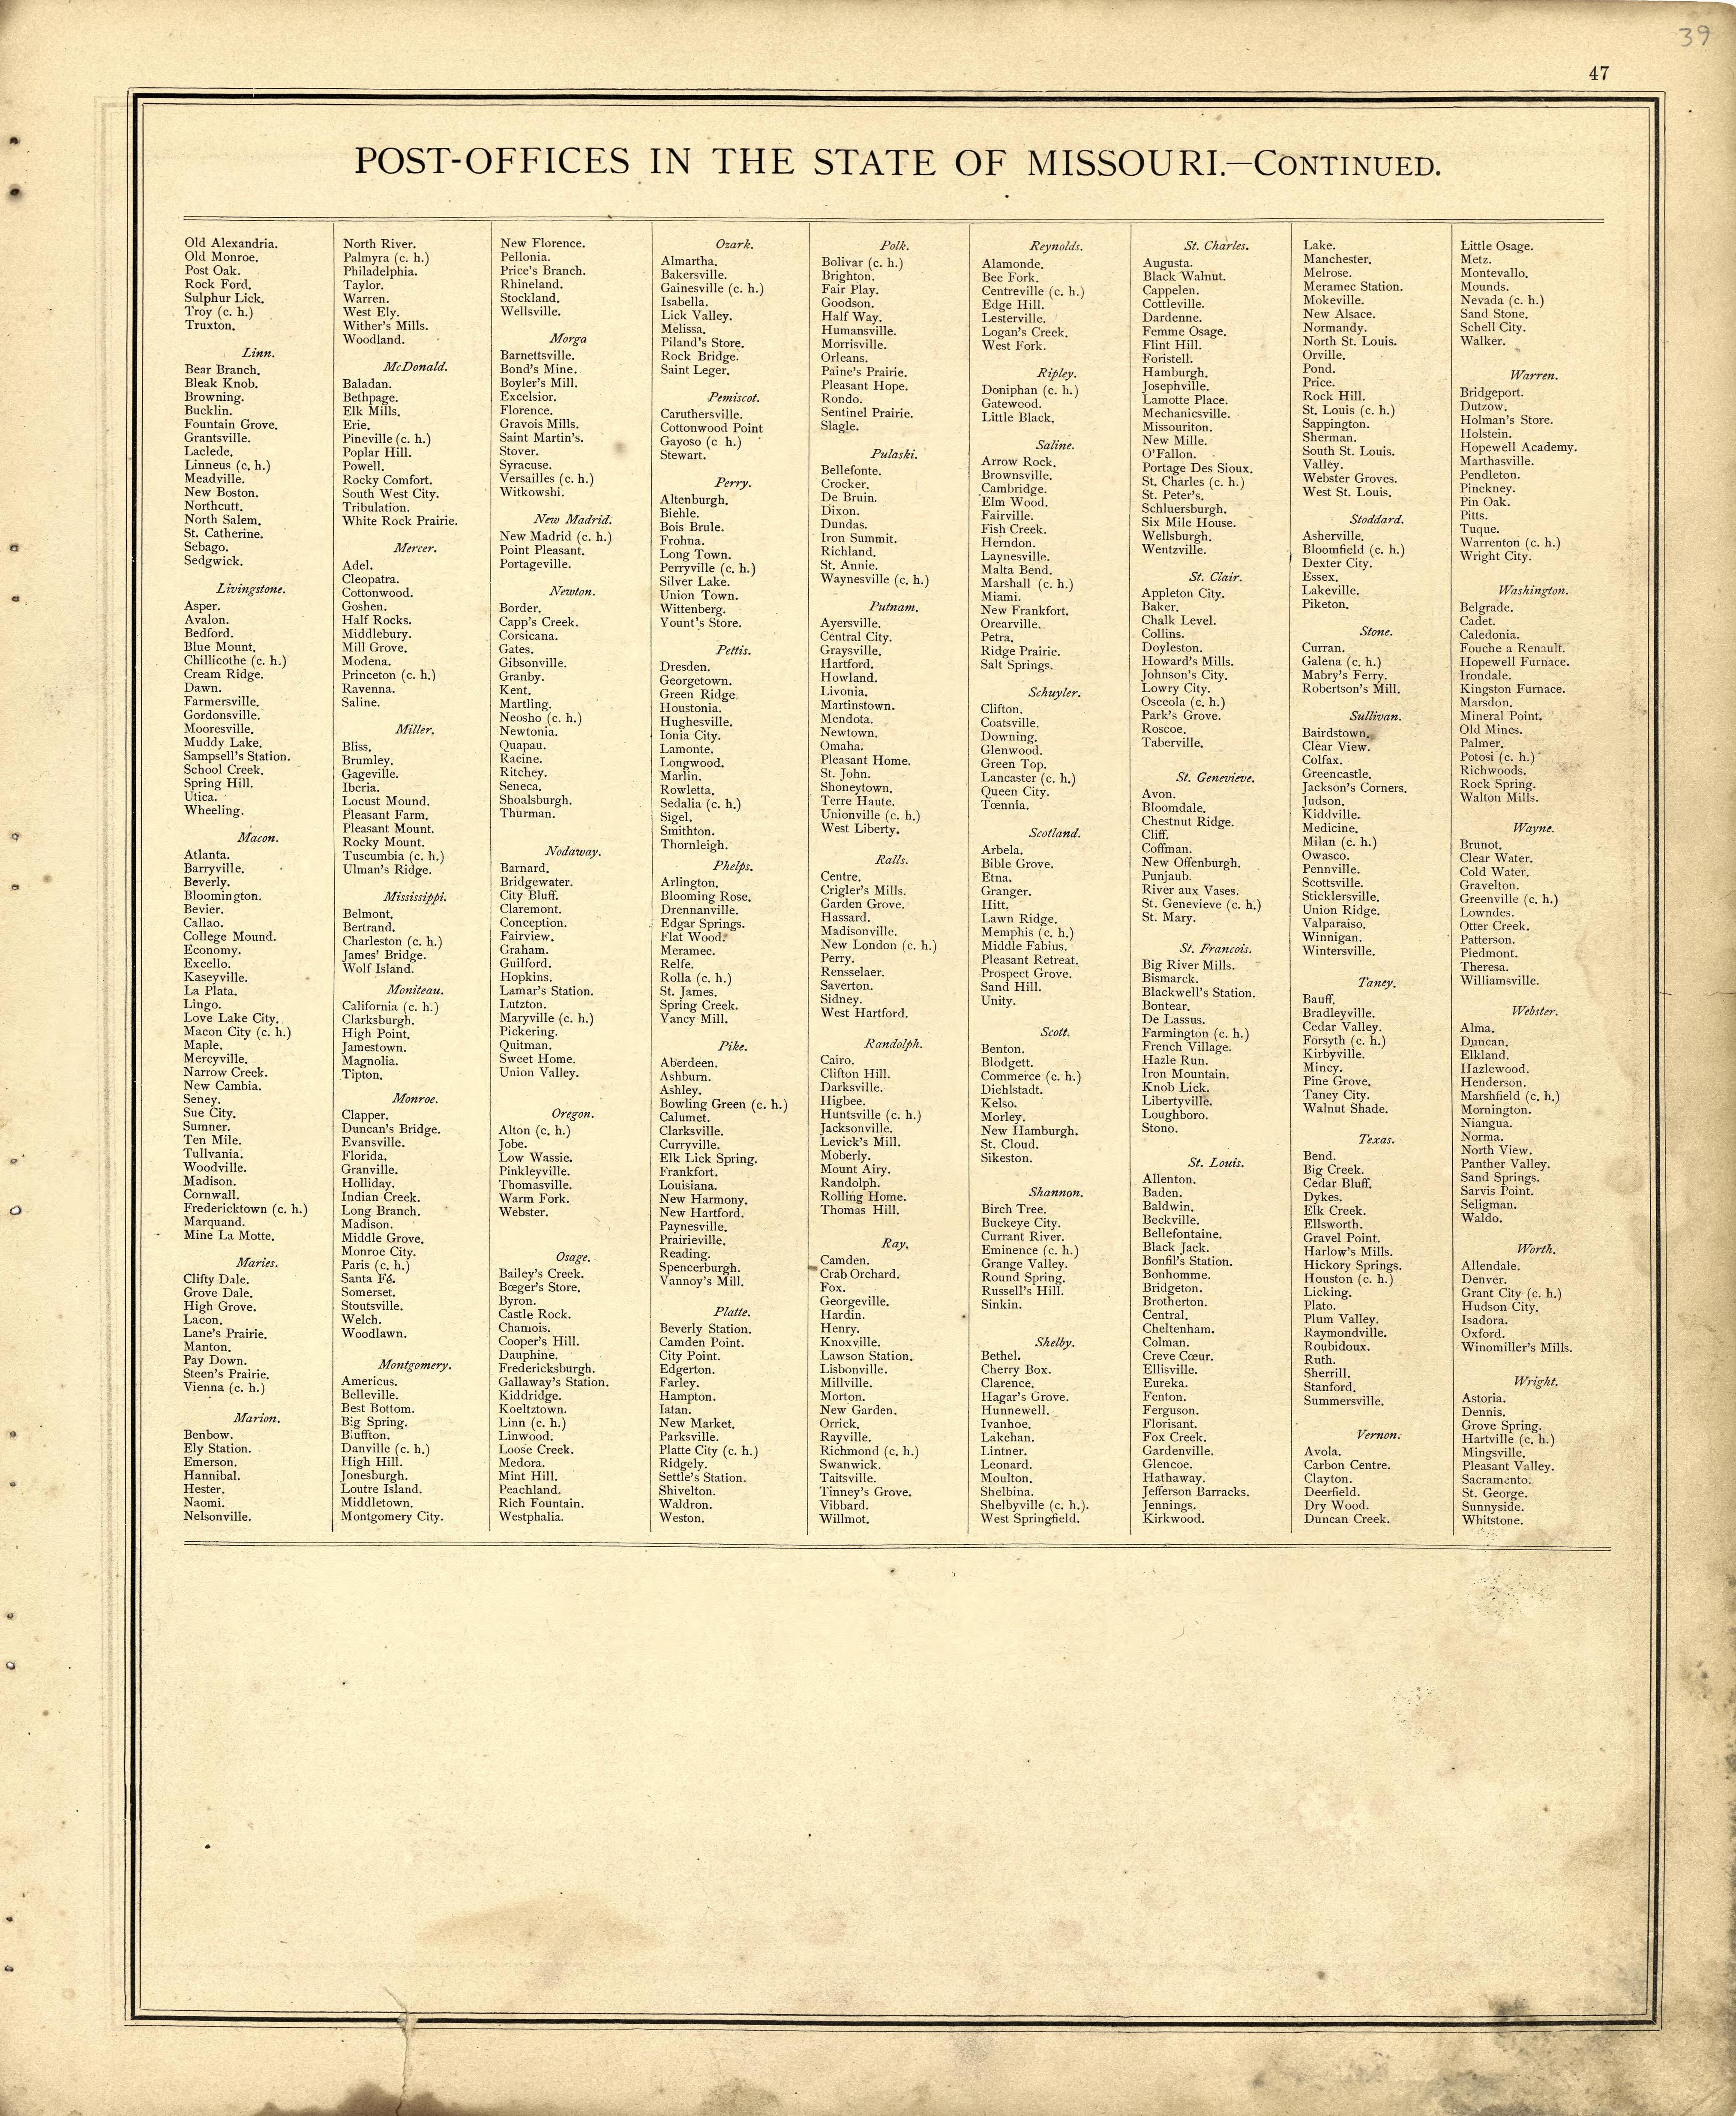 39
47
POST-OFFICES IN THE STATE OF MISSOURI.—CONTINUED.
Old Alexandria.
Old Monroe.
Post Oak.
Rock Ford.
Sulphur Lick.
Troy (c. h.)
Truxton.
Linn.
Bear Branch.
Bleak Knob.
Browning.
Bucklin.
Fountain Grove.
Grantsville.
Laclede.
Linneus (c. h.)
Meadville.
New Boston.
Northcutt.
North Salem.
St. Catherine.
Sebago.
Sedgwick.
Livingstone.
Asper.
Avalon.
Bedford.
Blue Mount.
Chillicothe (c. h.)
Cream Ridge.
Dawn.
Farmersville.
Gordonsville.
Mooresville.
Muddy Lake.
Sampsell's Station.
School Creek.
Spring Hill.
Utica.
Wheeling.
Macon.
Atlanta.
Barryville.
Beverly.
Bloomington.
Bevier.
Callao.
College Mound.
Economy.
Excello.
Kaseyville.
La Plata.
Lingo.
Love Lake City.
Macon City (c. h.)
Maple.
Mercyville.
Narrow Creek.
New Cambia.
Seney.
Sue City.
Sumner.
Ten Mile.
Tullvania.
Woodville.
Madison.
Cornwall.
Fredericktown (c. h.)
Marquand.
Mine La Motte.
Maries.
Clifty Dale.
Grove Dale.
High Grove.
Lacon.
Lane's Prairie.
Manton.
Pay Down.
Steen's Prairie.
Vienna (c. h.)
Marion.
Benbow.
Ely Station.
Emerson.
Hannibal.
Hester.
Naomi.
Nelsonville.
North River.
Palmyra (c. h.)
Philadelphia.
Taylor.
Warren.
West Ely.
Wither's Mills.
Woodland.
McDonald.
Baladan.
Bethpage.
Elk Mills.
Erie.
Pineville (c. h.)
Poplar Hill.
Powell.
Rocky Comfort.
South West City.
Tribulation.
White Rock Prairie.
Mercer.
Adel.
Cleopatra.
Cottonwood.
Goshen.
Half Rocks.
Middlebury.
Mill Grove.
Modena.
Princeton (c. h.)
Ravenna.
Saline.
Miller.
Bliss.
Brumley.
Gageville.
Iberia.
Locust Mound.
Pleasant Farm.
Pleasant Mount.
Rocky Mount.
Tuscumbia (c. h.)
Ulman's Ridge.
Mississippi.
Belmont.
Bertrand.
Charleston (c. h.)
James' Bridge.
Wolf Island.
Moniteau.
California (c. h.)
Clarksburgh.
High Point.
Jamestown.
Magnolia.
Tipton.
Monroe.
Clapper.
Duncan's Bridge.
Evansville.
Florida.
Granville.
Holliday.
Indian Creek.
Long Branch.
Madison.
Middle Grove.
Monroe City.
Paris (c. h.)
Santa Fé.
Somerset.
Stoutsville.
Welch.
Woodlawn.
Montgomery.
Americus.
Belleville.
Best Bottom.
Big Spring.
Bluffton.
Danville (c. h.)
High Hill.
Jonesburgh.
Loutre Island.
Middletown.
Montgomery City.
New Florence.
Pellonia.
Price's Branch.
Rhineland.
Stockland.
Wellsville.
Morga
Barnettsville.
Bond's Mine.
Boyler's Mill.
Excelsior.
Florence.
Gravois Mills.
Saint Martin's.
Stover.
Syracuse.
Versailles (c. h.)
Witkowshi.
New Madrid.
New Madrid (c. h.)
Point Pleasant.
Portageville.
Newton.
Border.
Capp's Creek.
Corsicana.
Gates.
Gibsonville.
Granby.
Kent.
Martling.
Neosho (c. h.)
Newtonia.
Quapau.
Racine.
Ritchey.
Seneca.
Shoalsburgh.
Thurman.
Nodaway.
Barnard.
Bridgewater.
City Bluff.
Claremont.
Conception.
Fairview.
Graham.
Guilford.
Hopkins.
Lamar's Station.
Lutzton.
Maryville (c. h.)
Pickering.
Quitman.
Sweet Home.
Union Valley.
Oregon.
Alton (c. h.)
Jobe.
Low Wassie.
Pinkleyville.
Thomasville.
Warm Fork.
Webster.
Osage.
Bailey's Creek.
Bœger's Store.
Byron.
Castle Rock.
Chamois.
Cooper's Hill.
Dauphine.
Fredericksburgh.
Gallaway's Station.
Kiddridge.
Koeltztown.
Linn (c. h.)
Linwood.
Loose Creek.
Medora.
Mint Hill.
Peachland.
Rich Fountain.
Westphalia.
Ozark.
Almartha.
Bakersville.
Gainesville (c. h.)
Isabella.
Lick Valley.
Melissa.
Piland's Store.
Rock Bridge.
Saint Leger.
Pemiscot.
Caruthersville.
Cottonwood Point
Gayoso (c h.)
Stewart.
Perry.
Altenburgh.
Biehle.
Bois Brule.
Frohna.
Long Town.
Perryville (c. h.)
Silver Lake.
Union Town.
Wittenberg.
Yount's Store.
Pettis.
Dresden.
Georgetown.
Green Ridge.
Houstonia.
Hughesville.
Ionia City.
Lamonte.
Longwood.
Marlin.
Rowletta.
Sedalia (c. h.)
Sigel.
Smithton.
Thornleigh.
Phelps.
Arlington.
Blooming Rose.
Drennanville.
Edgar Springs.
Flat Wood.
Meramec.
Relfe.
Rolla (c. h.)
St. James.
Spring Creek.
Yancy Mill.
Pike.
Aberdeen.
Ashburn.
Ashley.
Bowling Green (c. h.)
Calumet.
Clarksville.
Curryville.
Elk Lick Spring.
Frankfort.
Louisiana.
New Harmony.
New Hartford.
Paynesville.
Prairieville.
Reading.
Spencerburgh.
Vannoy's Mill.
Platte.
Beverly Station.
Camden Point.
City Point.
Edgerton.
Farley.
Hampton.
Iatan.
New Market.
Parksville.
Platte City (c. h.)
Ridgely.
Settle's Station.
Shivelton.
Waldron.
Weston.
Polk.
Bolivar (c. h.)
Brighton.
Fair Play.
Goodson.
Half Way.
Humansville.
Morrisville.
Orleans.
Paine's Prairie.
Pleasant Hope.
Rondo.
Sentinel Prairie.
Slagle.
Pulaski.
Bellefonte.
Crocker.
De Bruin.
Dixon.
Dundas.
Iron Summit.
Richland.
St. Annie.
Waynesville (c. h.)
Putnam.
Ayersville.
Central City.
Graysville.
Hartford.
Howland.
Livonia.
Martinstown.
Mendota.
Newtown.
Omaha.
Pleasant Home.
St. John.
Shoneytown.
Terre Haute.
Unionville (c. h.)
West Liberty.
Ralls.
Centre.
Crigler's Mills.
Garden Grove.
Hassard.
Madisonville.
New London (c. h.)
Perry.
Rensselaer.
Saverton.
Sidney.
West Hartford.
Randolph.
Cairo.
Clifton Hill.
Darksville.
Higbee.
Huntsville (c. h.)
Jacksonville.
Levick's Mill.
Moberly.
Mount Airy.
Randolph.
Rolling Home.
Thomas Hill.
Ray.
Camden.
Crab Orchard.
Fox.
Georgeville.
Hardin.
Henry.
Knoxville.
Lawson Station.
Lisbonville.
Millville.
Morton.
New Garden.
Orrick.
Rayville.
Richmond (c. h.)
Swanwick.
Taitsville.
Tinney's Grove.
Vibbard.
Willmot.
Reynolds.
Alamonde.
Bee Fork.
Centreville (c. h.)
Edge Hill.
Lesterville.
Logan's Creek.
West Fork.
Ripley.
Doniphan (c. h.)
Gatewood.
Little Black.
Saline.
Arrow Rock.
Brownsville.
Cambridge.
Elm Wood.
Fairville.
Fish Creek.
Herndon.
Laynesville.
Malta Bend.
Marshall (c. h.)
Miami.
New Frankfort.
Orearville.
Petra.
Ridge Prairie.
Salt Springs.
Schuyler.
Clifton.
Coatsville.
Downing.
Glenwood.
Green Top.
Lancaster (c. h.)
Queen City.
Tœnnia.
Scotland.
Arbela.
Bible Grove.
Etna.
Granger.
Hitt.
Lawn Ridge.
Memphis (c. h.)
Middle Fabius.
Pleasant Retreat.
Prospect Grove.
Sand Hill.
Unity.
Scott.
Benton.
Blodgett.
Commerce (c. h.)
Diehlstadt.
Kelso.
Morley.
New Hamburgh.
St. Cloud.
Sikeston.
Shannon.
Birch Tree.
Buckeye City.
Currant River.
Eminence (c. h.)
Grange Valley.
Round Spring.
Russell's Hill.
Sinkin.
Shelby.
Bethel.
Cherry Box.
Clarence.
Hagar's Grove.
Hunnewell.
Ivanhoe.
Lakehan.
Lintner.
Leonard.
Moulton.
Shelbina.
Shelbyville (c. h.).
West Springfield.
St. Charles.
Augusta.
Black Walnut.
Cappelen.
Cottleville.
Dardenne.
Femme Osage.
Flint Hill.
Foristell.
Hamburgh.
Josephville.
Lamotte Place.
Mechanicsville.
Missouriton.
New Mille.
O'Fallon.
Portage Des Sioux.
St. Charles (c. h.)
St. Peter's.
Schluersburgh.
Six Mile House.
Wellsburgh.
Wentzville.
St. Clair.
Appleton City.
Baker.
Chalk Level.
Collins.
Doyleston.
Howard's Mills.
Johnson's City.
Lowry City.
Osceola (c. h.)
Park's Grove.
Roscoe.
Taberville.
St. Genevieve.
Avon.
Bloomdale.
Chestnut Ridge.
Cliff.
Coffman.
New Offenburgh.
Punjaub.
River aux Vases.
St. Genevieve (c. h.)
St. Mary.
St. Francois.
Big River Mills.
Bismarck.
Blackwell's Station.
Bontear.
De Lassus.
Farmington (c. h.)
French Village.
Hazle Run.
Iron Mountain.
Knob Lick.
Libertyville.
Loughboro.
Stono.
St. Louis.
Allenton.
Baden.
Baldwin.
Beckville.
Bellefontaine.
Black Jack.
Bonfil's Station.
Bonhomme.
Bridgeton.
Brotherton.
Central.
Cheltenham.
Colman.
Creve Cœur.
Ellisville.
Eureka.
Fenton.
Ferguson.
Florisant.
Fox Creek.
Gardenville.
Glencoe.
Hathaway.
Jefferson Barracks.
Jennings.
Kirkwood.
Lake.
Manchester.
Melrose.
Meramec Station.
Mokeville.
New Alsace.
Normandy.
North St. Louis.
Orville.
Pond.
Price.
Rock Hill.
St. Louis (c. h.)
Sappington.
Sherman.
South St. Louis.
Valley.
Webster Groves.
West St. Louis.
Stoddard.
Asherville.
Bloomfield (c. h.)
Dexter City.
Essex.
Lakeville.
Piketon.
Stone.
Curran.
Galena (c. h.)
Mabry's Ferry.
Robertson's Mill.
Sullivan.
Bairdstown.
Clear View.
Colfax.
Greencastle.
Jackson's Corners.
Judson.
Kiddville.
Medicine.
Milan (c. h.)
Owasco.
Pennville.
Scottsville.
Sticklersville.
Union Ridge.
Valparaiso.
Winnigan.
Wintersville.
Taney.
Bauff.
Bradleyville.
Cedar Valley.
Forsyth (c. h.)
Kirbyville.
Mincy.
Pine Grove.
Taney City.
Walnut Shade.
Texas.
Bend.
Big Creek.
Cedar Bluff.
Dykes.
Elk Creek.
Ellsworth.
Gravel Point.
Harlow's Mills.
Hickory Springs.
Houston (c. h.)
Licking.
Plato.
Plum Valley.
Raymondville.
Roubidoux.
Ruth.
Sherrill.
Stanford.
Summersville.
Vernon.
Avola.
Carbon Centre.
Clayton.
Deerfield.
Dry Wood.
Duncan Creek.
Little Osage.
Metz.
Montevallo.
Mounds.
Nevada (c. h.)
Sand Stone.
Schell City.
Walker.
Warren.
Bridgeport.
Dutzow.
Holman's Store.
Holstein.
Hopewell Academy.
Marthasville.
Pendleton.
Pinckney.
Pin Oak.
Pitts.
Tuque.
Warrenton (c. h.)
Wright City.
Washington.
Belgrade.
Cadet.
Caledonia.
Fouche a Renault.
Hopewell Furnace.
Irondale.
Kingston Furnace.
Marsdon.
Mineral Point.
Old Mines.
Palmer.
Potosi (c. h.)
Richwoods.
Rock Spring.
Walton Mills.
Wayne.
Brunot.
Clear Water.
Cold Water.
Gravelton.
Greenville (c. h.)
Lowndes.
Otter Creek.
Patterson.
Piedmont.
Theresa.
Williamsville.
Webster.
Alma.
Duncan.
Elkland.
Hazlewood.
Henderson.
Marshfield (c. h.)
Mornington.
Niangua.
Norma.
North View.
Panther Valley.
Sand Springs.
Sarvis Point.
Seligman.
Waldo.
Worth.
Allendale.
Denver.
Grant City (c. h.)
Hudson City.
Isadora.
Oxford.
Winomiller's Mills.
Wright.
Astoria.
Dennis.
Grove Spring.
Hartville (c. h.)
Mingsville.
Pleasant Valley.
Sacramento.
St. George.
Sunnyside.
Whitstone.